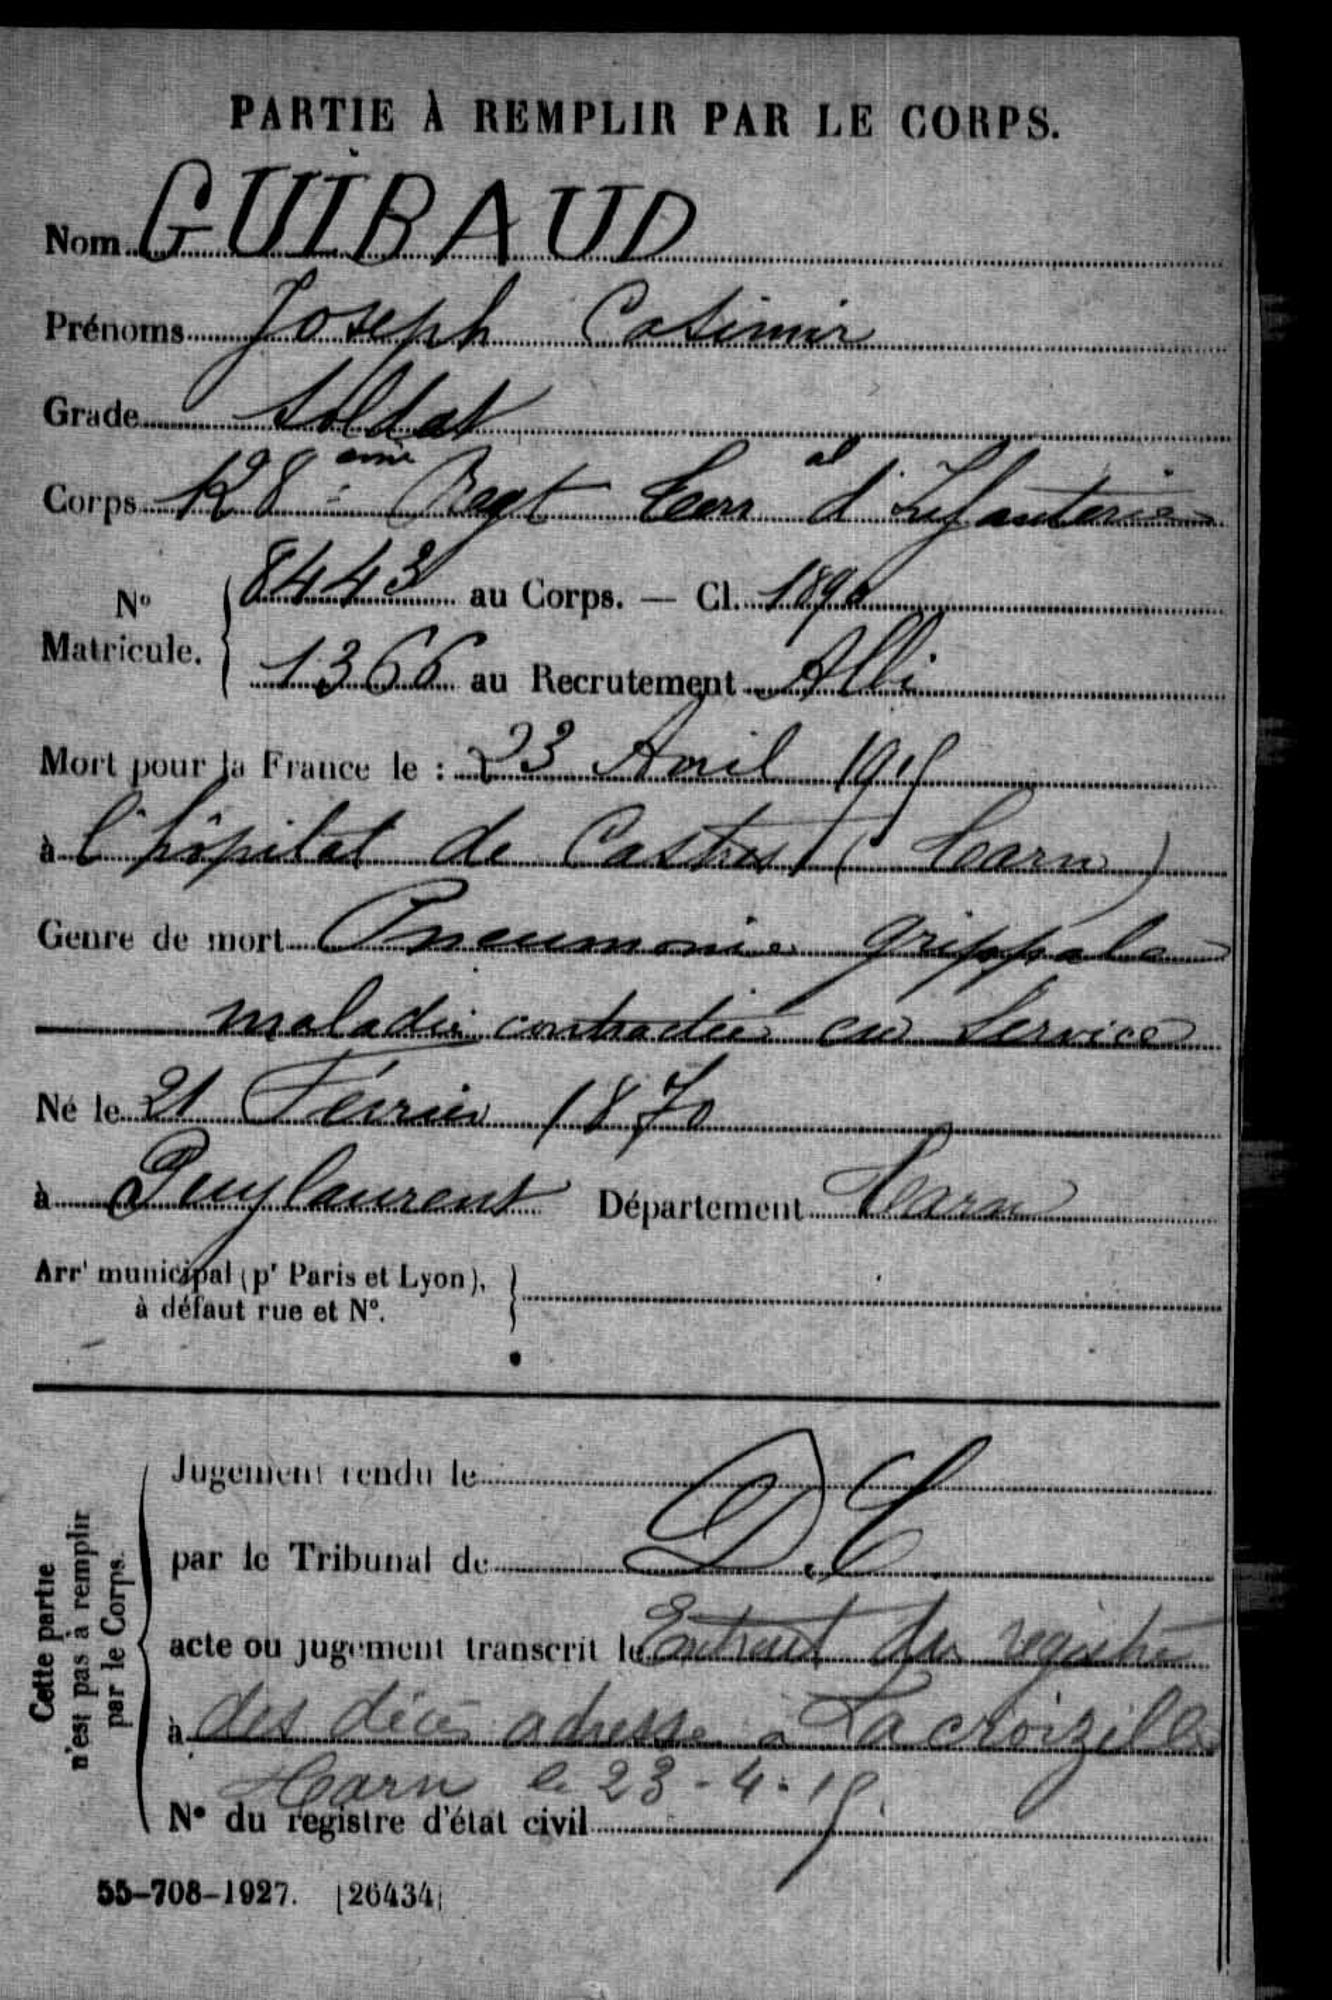 PARTIE À REMPLIR PAR LE CORPS.
Nom GUIBAUD
Prénoms Joseph Casimir
Grade Soldat
Corps 128ème Regt Terral d'Infanterie
No Matricule. 8443 au Corps. — Cl. 1890
1366 au Recrutement Albi
Mort pour la France le : 23 Avril 1915
à l'hôpital de Castres (Tarn)
Genre de mort Pneumonie grippale
maladie contractée en service
Né le 21 Février 1870
à Puylaurent Département Tarn
Arrt municipal (pr Paris et Lyon), à défaut rue et No.
Cette partie n'est pas à remplir par le Corps.
Jugement rendu le
par le Tribunal de D.C.
acte ou jugement transcrit le Extrait du registre
à des décès adressé à Lacroizille
Tarn le 23-4-15.
No du registre d'état civil
55-708-1927. [26434]